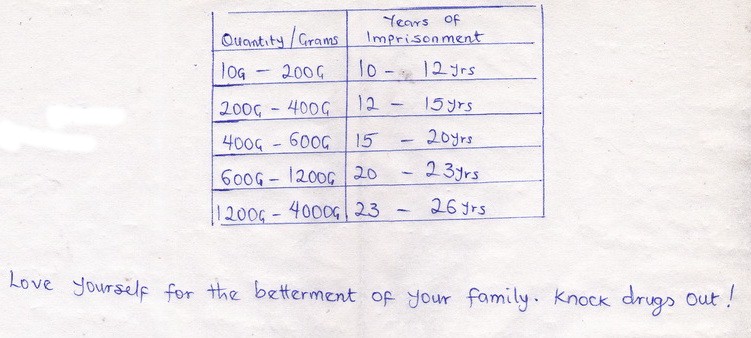 Quantity/Grams Years of Imprisonment
10G - 200G 10 - 12yrs
200G - 400G 12 - 15yrs
400G - 600G 15 - 20yrs
600G - 1200G 20 - 23yrs
1200G - 4000G 23 - 26yrs
Love yourself for the betterment of your family. Knock drugs out!